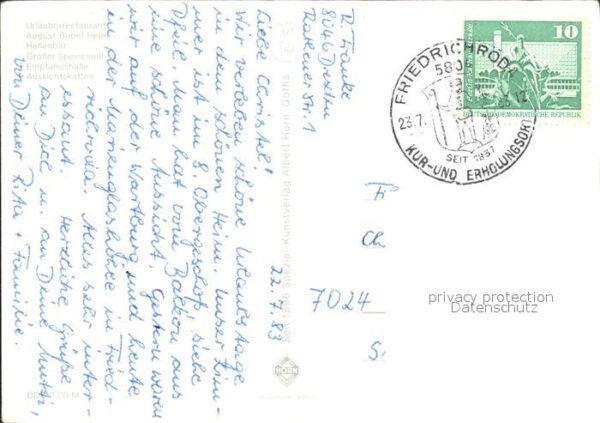 Urlauberrestaurant
August-Bebel-Heim
Hallenbar
Großer Speisesaal
Empfangshalle
Aussichtskaffee
R. Franke
8046 Dresden
Str. 1
22.7.83
Liebe Christel!
Wir verleben schöne Urlaubstage
in den schönen Heim. Unser Zim-
mer ist in 8. Obergeschoß siehe
Pfeil. Man hat vom Balkon aus
eine schöne Aussicht. Gestern waren
wir auf der Wartburg und heute
in der Marienglashöhle in Fried-
richroda. Alles sehr inter-
essant. Herzliche Grüße
an Dich u. an Deine Mutti,
von Deiner Rita + Familie.
Seit 1898 Spezial-Kunstverlag Albert Hein, Gotha
FRIEDRICHRODA
580
23.7.
12
SEIT 1837
KUR- UND ERHOLUNGSORT
10
DEUTSCHE DEMOKRATISCHE REPUBLIK
Ch
7024
privacy protection
Datenschutz
0,20 M